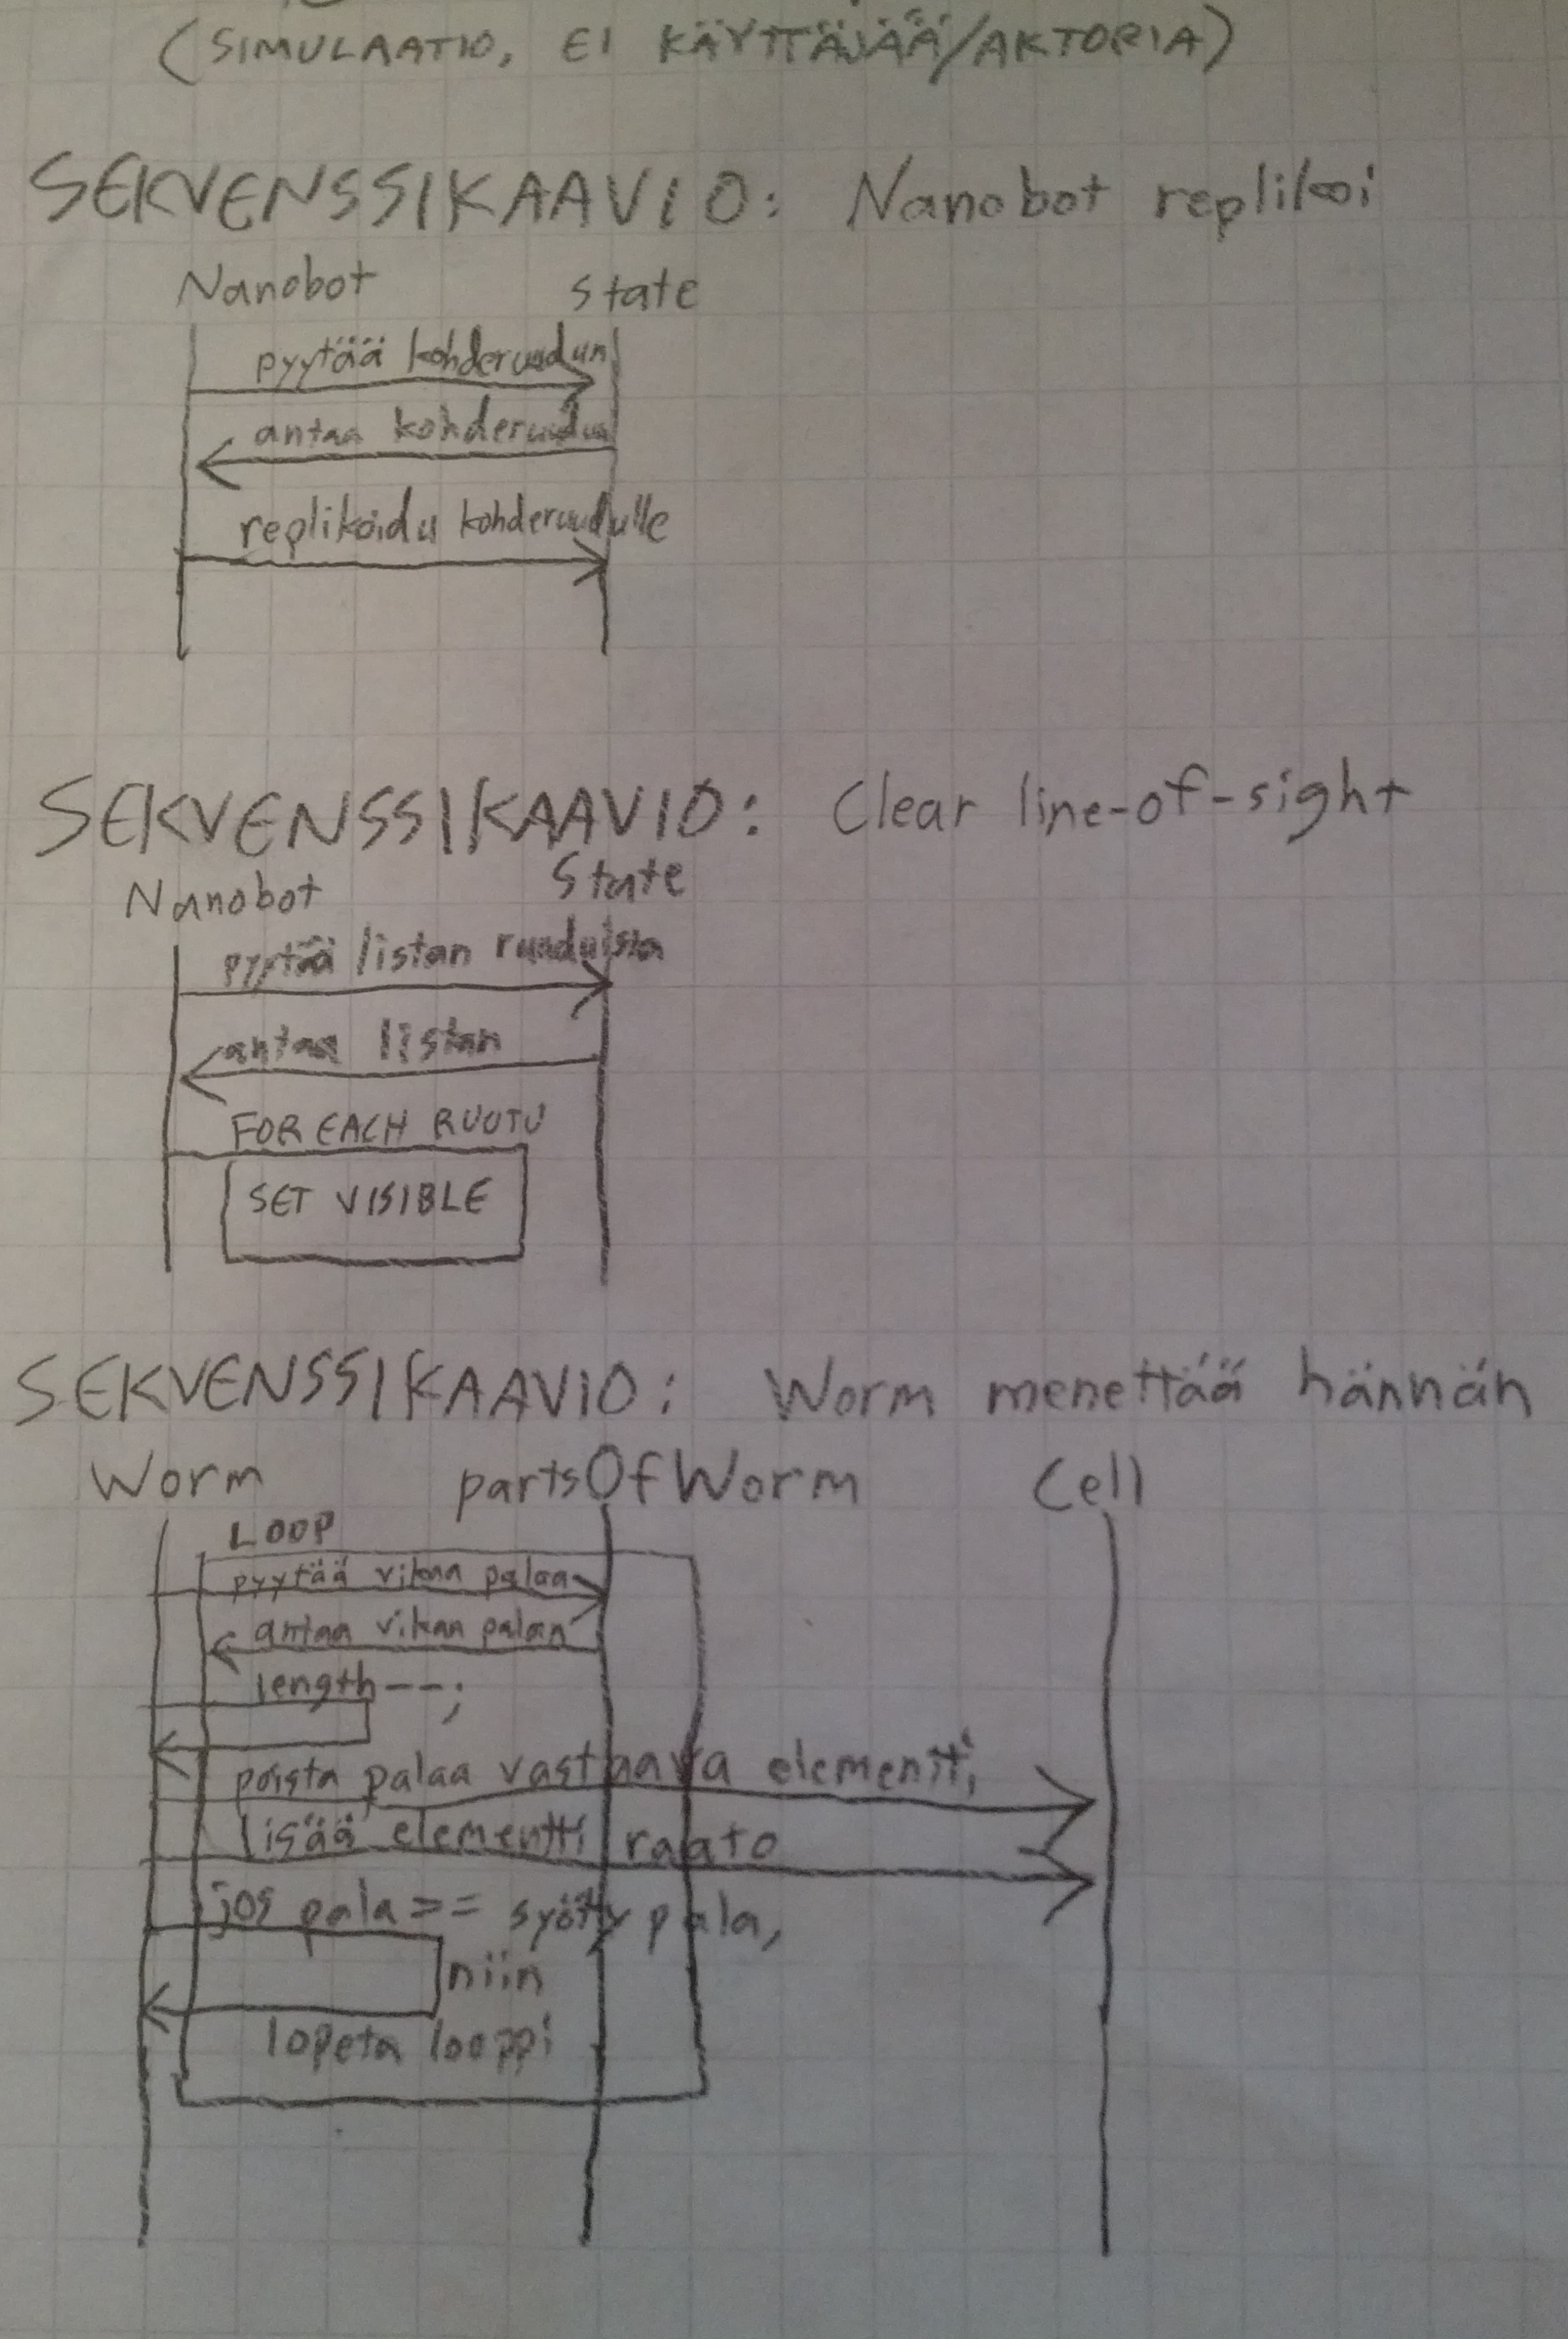 (SIMULAATIO, EI KÄYTTÄJÄÄ/AKTORIA)
SEKVENSSIKAAVIO: Nanobot replikoi
Nanobot State
pyytää kohderuudun
antaa kohderuudun
replikoidu kohderuudulle
SEKVENSSIKAAVIO: Clear line-of-sight
Nanobot State
pyytää listan ruuduista
antaa listan
FOR EACH RUUTU
SET VISIBLE
SEKVENSSIKAAVIO: Worm menettää hännän
Worm partsOfWorm Cell
LOOP
pyytää vikaa palaa
antaa vikan palan
length--;
poista palaa vastaava elementti
lisää elementti raato
jos pala == syöty pala,
niin
lopeta looppi